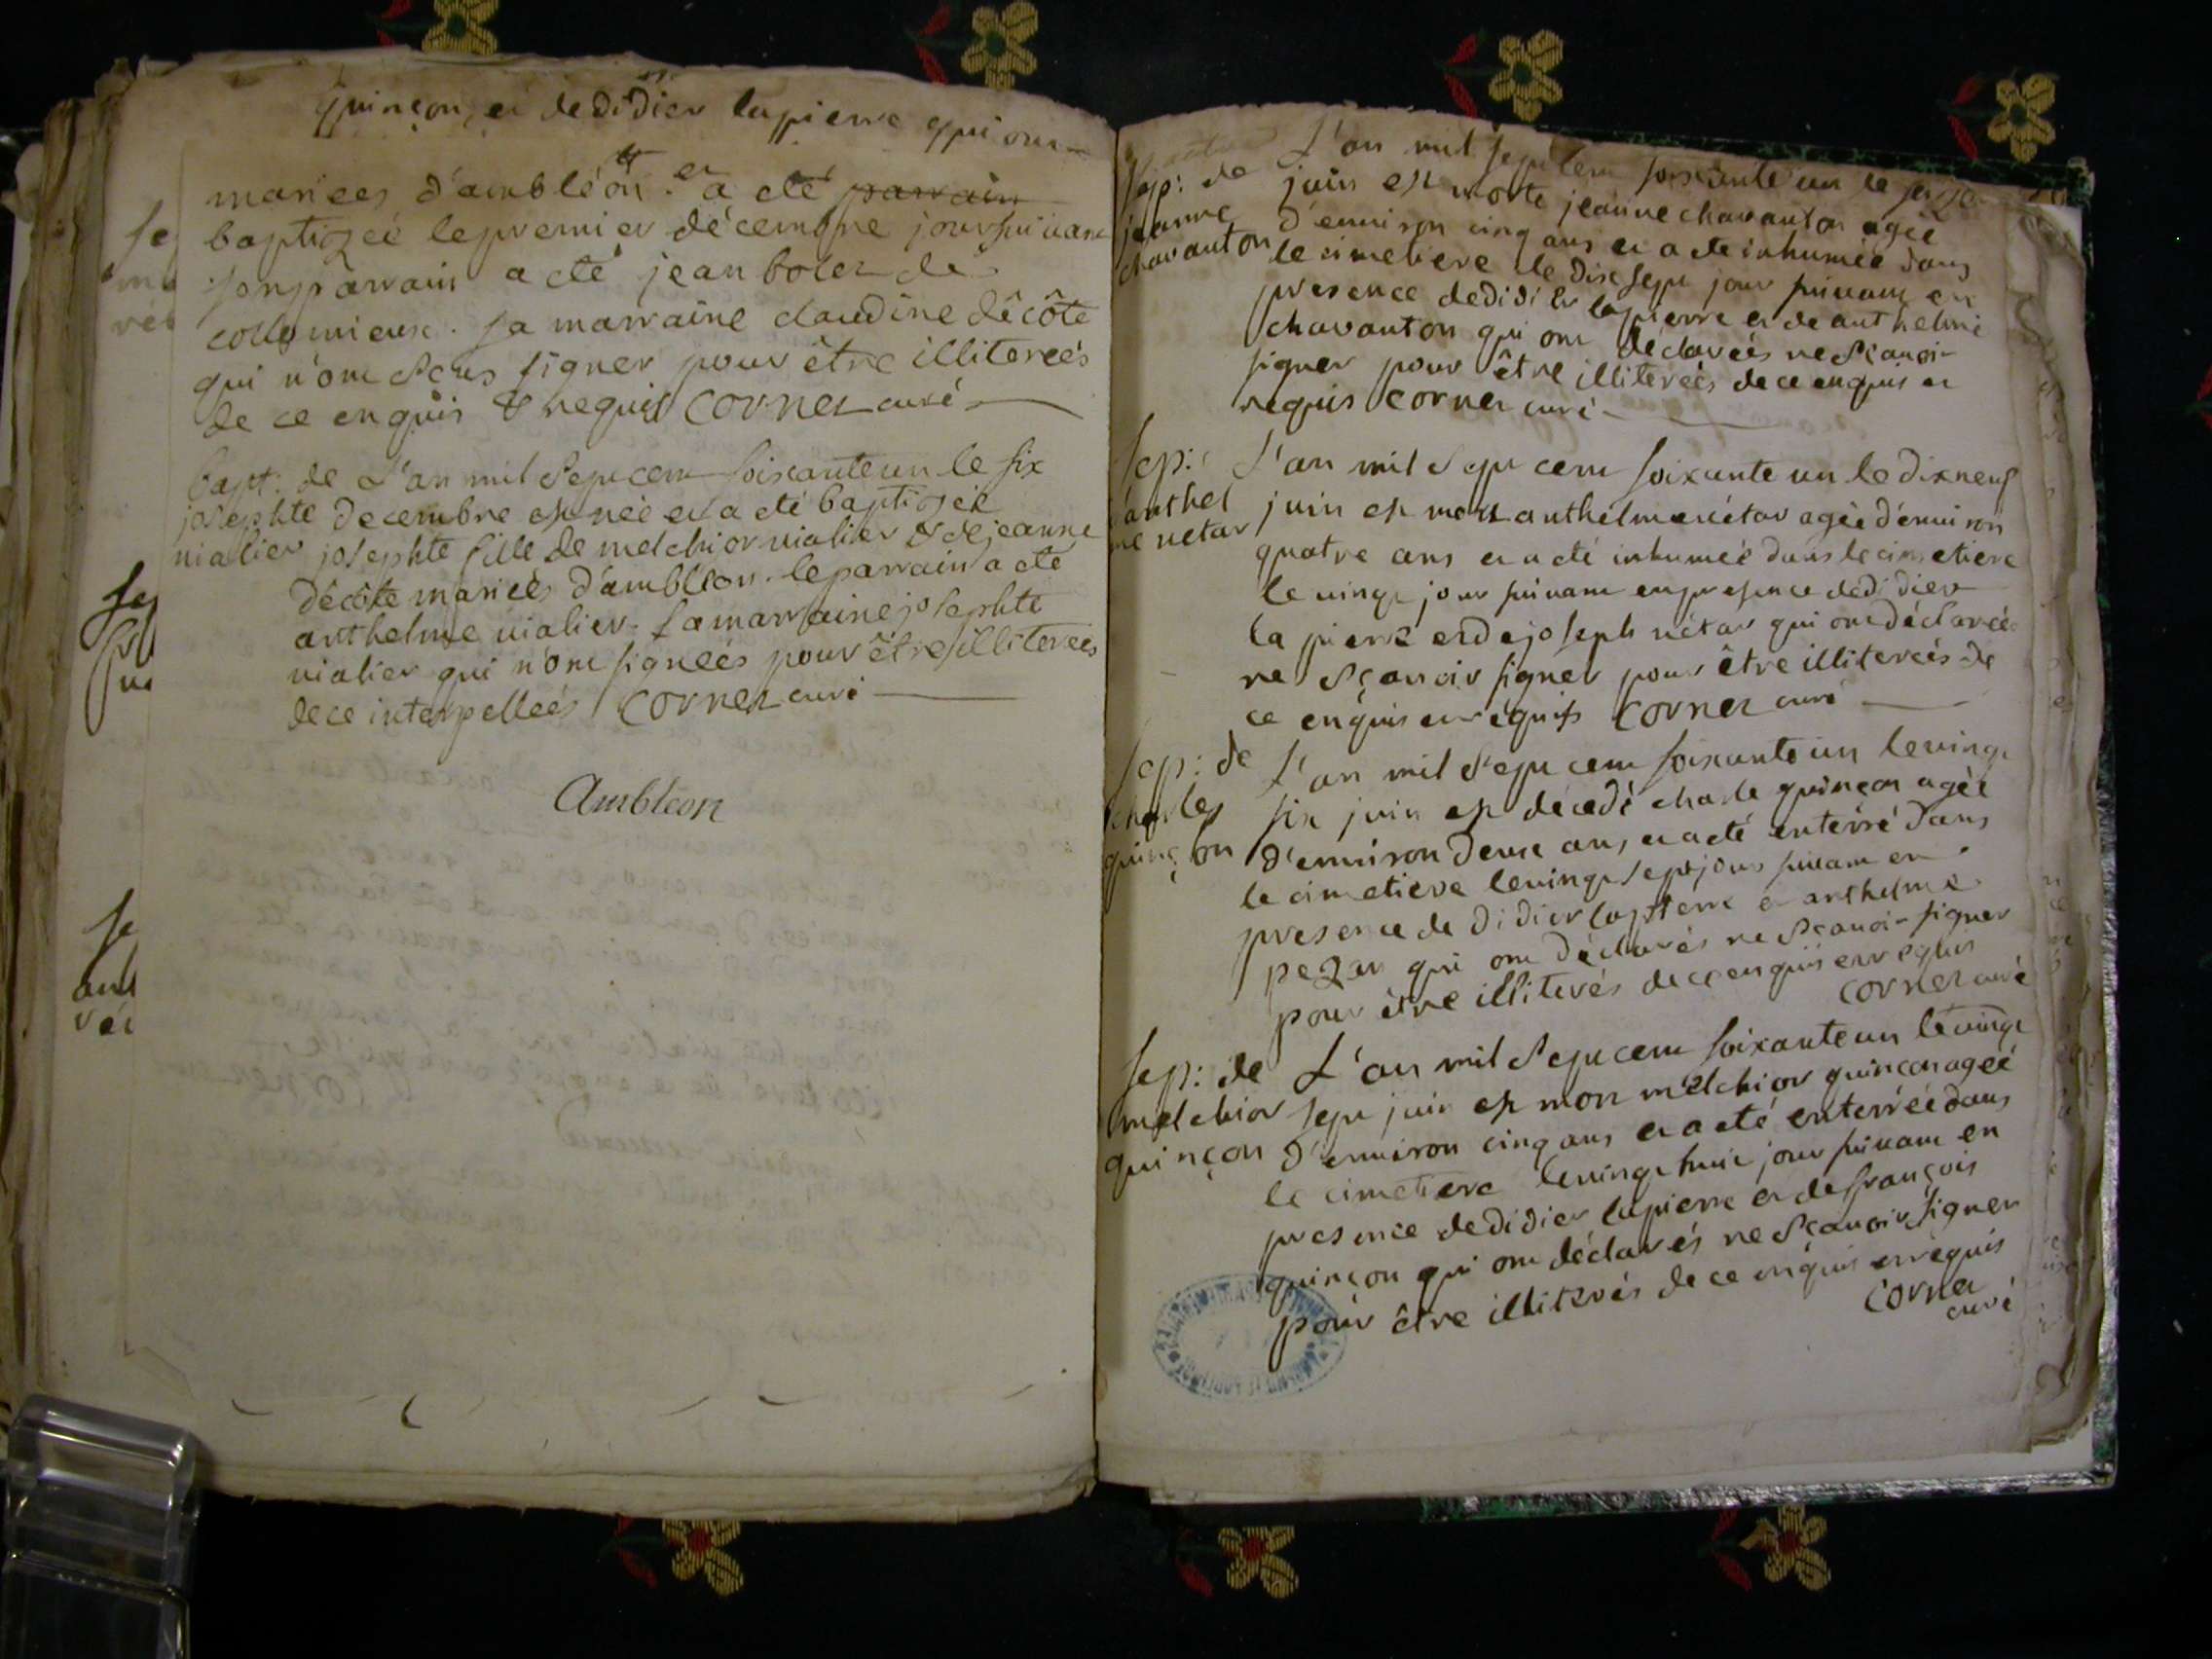 quinçon, et de didier lapierre qui ont
mariees d'ambléon. et a eté parrain
baptizeé le premier décembre jour suivant
son parrain a eté jean bolet de
collomieux. sa marraine claudine décôte
qui n'ont sçus signer pour être illitereés
de ce enquis & requis Cornet curé
bapt: de L'an mil sept cent soixante un le six
josephte decembre est neé et a eté baptizeé
vialier josephte fille de melchior vialier & de jeanne
décôte marieés d'ambléon. le parrain a eté
anthelme vialier. La marraine josephte
vialier qui n'ont signeés pour être illitereés
de ce interpelleés Cornet curé
Ambléon
Sep: de L'an mil sept cent soixante un le seize
jeanne juin est morte jeanne chavanton ageé
chavanton d'environ cinq ans et a eté inhumeé dans
le cimetiere le dix sept jour suivant en
presence de didier lapierre et de anthelme
chavanton qui ont déclareés ne sçavoir
signer pour être illitereés de ce enquis et
requis Cornet curé
Sep: L'an mil sept cent soixante un le dix neuf
d'anthel juin est mort anthelme nétar ageé d'environ
me netar quatre ans et a eté inhumeé dans le cimetiere
le vingt jour suivant en presence de didier
la pierre et de joseph nétar qui ont déclareé
ne sçavoir signer pour être illitereés de
ce enquis et requis Cornet curé
Sep: de L'an mil sept cent soixante un le vingt
charles six juin est décedé charle quinçon ageé
quinçon d'environ deux ans, et a eté enterré dans
le cimetiere le vingt sept jour suivant en
presence de didier lapierre et anthelme
pezan qui ont déclarés ne sçavoir signer
pour être illiterés de ce enquis et requis
Cornet curé
Sep: de L'an mil sept cent soixante un le vingt
melchior sept juin est mort melchior quinçon ageé
quinçon d'environ cinq ans et a eté enterreé dans
le cimetiere le vingt huit jour suivant en
presence de didier lapierre et de françois
quinçon qui ont déclarés ne sçavoir signer
pour être illiterés de ce enquis et requis
Cornet
curé